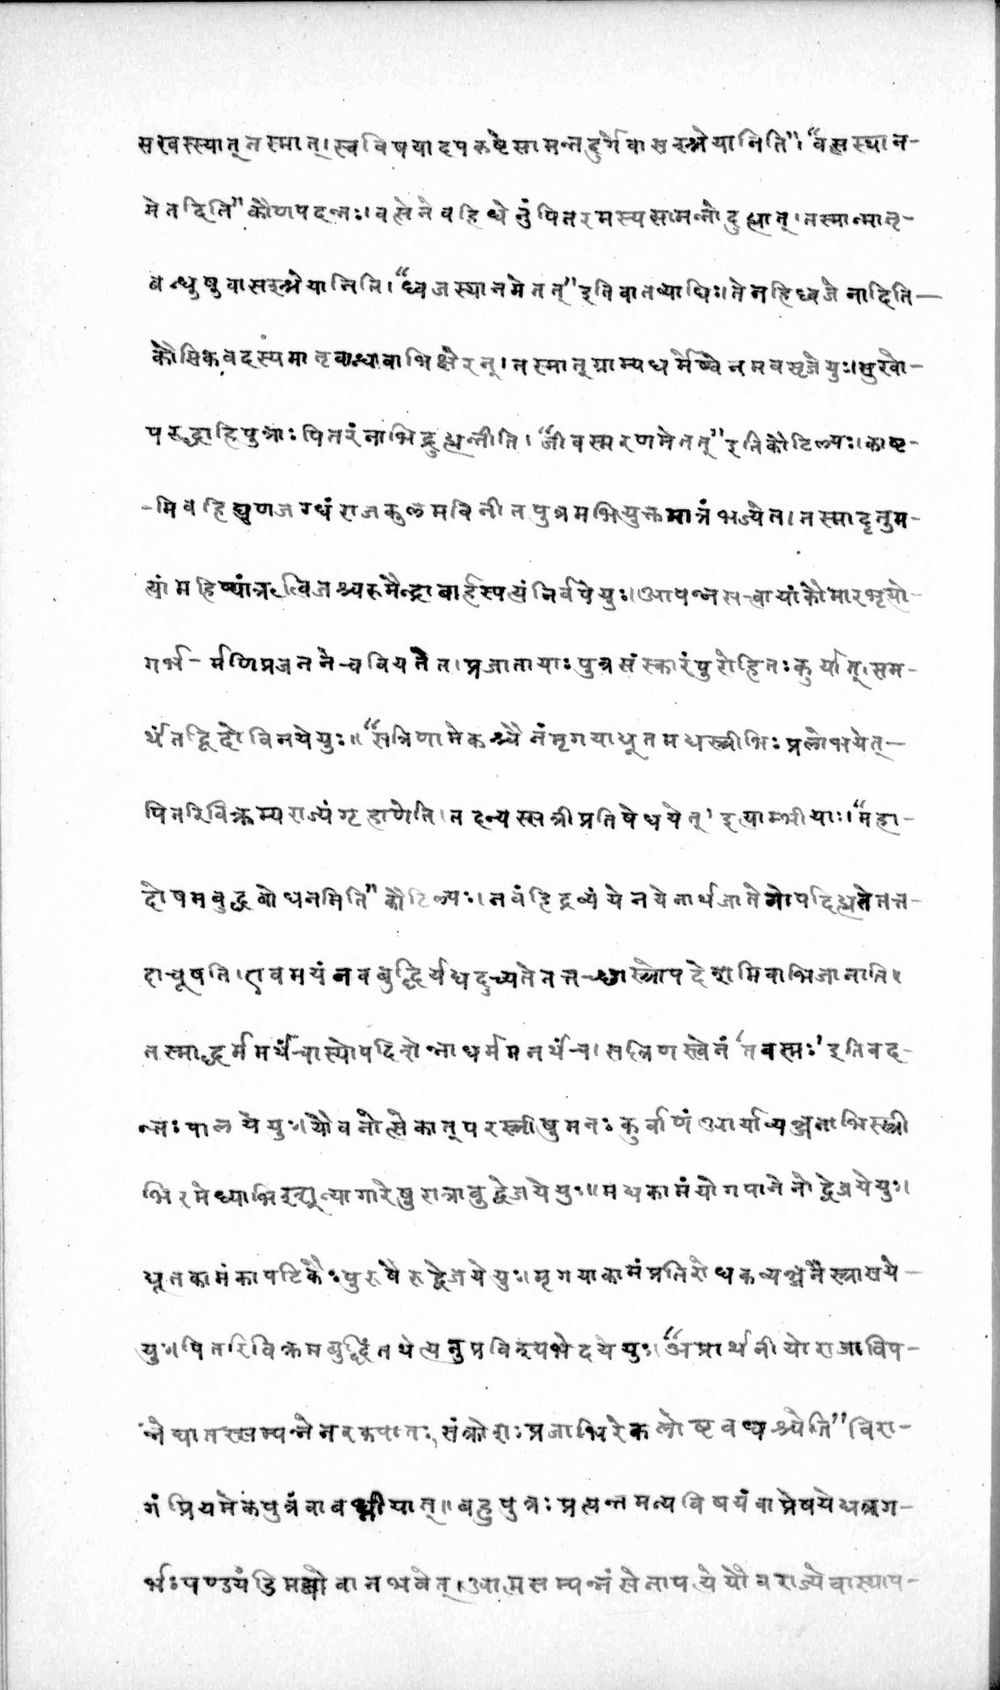 सखस्स्यात् तस्मात्। स्वविषयादपकृष्टे सामन्तदुर्गे वासश्श्रेयानिति"। "वत्सस्थान-
मेतदिति" कौणपदन्तः। वत्सेनेव हि धेनुं पितरमस्य सामन्तो दुह्यात्। तस्मान्मातृ-
बन्धुषु वासश्श्रेयानिति। "ध्वजस्थानमेतत्" इति वातव्याधिः। तेन हि ध्वजेनादिति-
कौशिकवदस्य मातृबान्धवा भिक्षेरन्। तस्मात् ग्राम्यधर्मेष्वेनमवसृजेयुः। सुखो-
परुद्धा हि पुत्राः पितरं नाभिद्रुह्यन्तीति। "जीवस्मरणमेतत्" इति कौटिल्यः। काष्ट-
-मिव हि घुणजग्धं राजकुलमविनीतपुत्रमभियुक्तमात्रं भज्येत। तस्मादृतुम-
त्यां महिष्यां ऋत्विजश्चरुमैन्द्राबार्हस्पत्यं निर्वपेयुः। आपन्नसत्वायां कौमारभृत्यो
गर्भ-र्मणि प्रजनने च वियतेत। प्रजातायाः पुत्रसंस्कारं पुरोहितः कुर्यात्। सम-
र्थं तद्विदो विनयेयुः॥ "सत्रिणामेकश्चैनं मृगयाद्यूतमद्यस्त्रीभिः प्रलोभयेत्-
पितरि विक्रम्य राज्यं गृहाणेति। तदन्यस्सत्री प्रतिषेधयेत्' इत्याम्भीयाः। "महा-
दोषमबुद्धबोधनमिति" कौटिल्यः। नवं हि द्रव्यं येन येनार्थजातेनोपदिह्यते तत्त-
दाचूषति। एवमयं नवबुद्धिर्यद्यदुच्यते तत्तच्छास्त्रोपदेशमिवाभिजानाति॥
तस्माद्धर्ममर्थं चास्योपदिशेन्नाधर्ममनर्थं च। सत्रिणस्त्वेनं 'तव स्मः' इति वद-
न्तः पालयेयुः। यौवनोत्सेकात् परस्त्रीषु मनः कुर्वाणं आर्याव्यञ्जनाभिस्स्त्री
भिरमेध्याभिश्शून्यागारेषु रात्रावुद्वेजयेयुः॥ मद्यकामं योगपानेनोद्वेजयेयुः।
द्यूतकामं कापटिकैः पुरुषैरुद्वेजयेयुः। मृगयाकामं प्रतिरोधकव्यञ्जनैस्त्रासये-
युः। पितरि विक्रमबुद्धिं तथेत्यनुप्रविश्य भेदयेयुः। "अप्रार्थनीयो राजा विप-
न्ने घातस्सम्पन्ने नरकपातः संक्रोशः प्रजाभिरेकलोष्टवधश्चेति" विरा-
गं प्रियमेकपुत्रं वा बध्नीयात्॥ बहुपुत्रः प्रत्यन्तमन्यविषयं वा प्रेषयेद्यत्र ग-
र्भः पण्यं डिमम्बो वा न भवेत्। आत्मसम्पन्नं सेनापत्ये यौवराज्ये वा स्थाप-